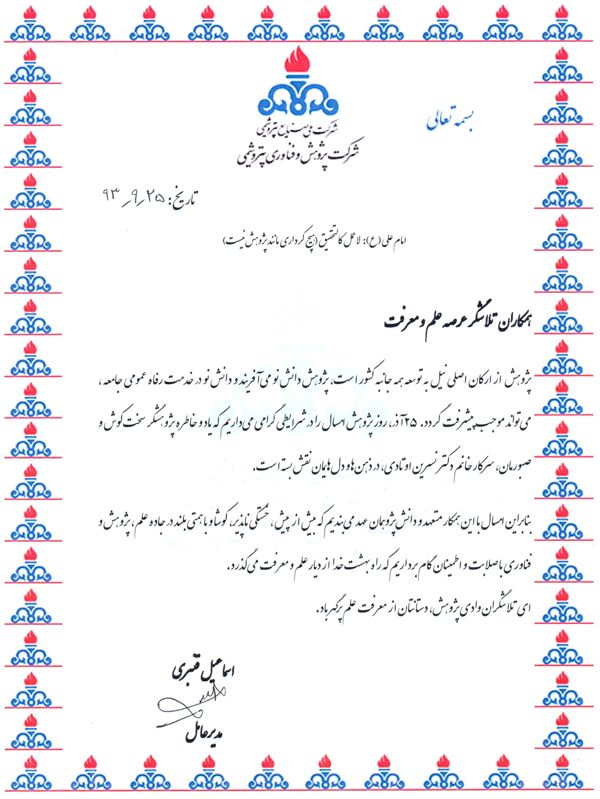 بسمه تعالی
شرکت ملی صنایع پتروشیمی
شرکت پژوهش و فناوری پتروشیمی
تاریخ: ۹۳٫۹٫۲۵
امام علی (ع): لا عمل کالتحقیق (هیچ کرداری مانند پژوهش نیست)
همکاران تلاشگر عرصه علم و معرفت
پژوهش از ارکان اصلی نیل به توسعه همه جانبه کشور است، پژوهش دانش نو می‌آفریند و دانش نو در خدمت رفاه عمومی جامعه،
می‌تواند موجب پیشرفت گردد. ۲۵ آذر، روز پژوهش امسال را در شرایطی گرامی می‌داریم که یاد و خاطره پژوهشگر سخت‌کوش و
صبورمان، سرکار خانم دکتر نسرین اوتادی، در ذهن‌ها و دل‌هایمان نقش بسته است.
بنابراین امسال با این همکار متعهد و دانش‌پژوهمان عهد می‌بندیم که بیش از پیش، خستگی ناپذیر، کوشا و با همتی بلند در جاده علم، پژوهش و
فناوری با صلابت و اطمینان گام برداریم که راه بهشت خدا از دیار علم و معرفت می‌گذرد.
ای تلاشگران وادی پژوهش، دستانتان از معرفت علم پرگهر باد.
اسماعیل قنبری
مدیرعامل